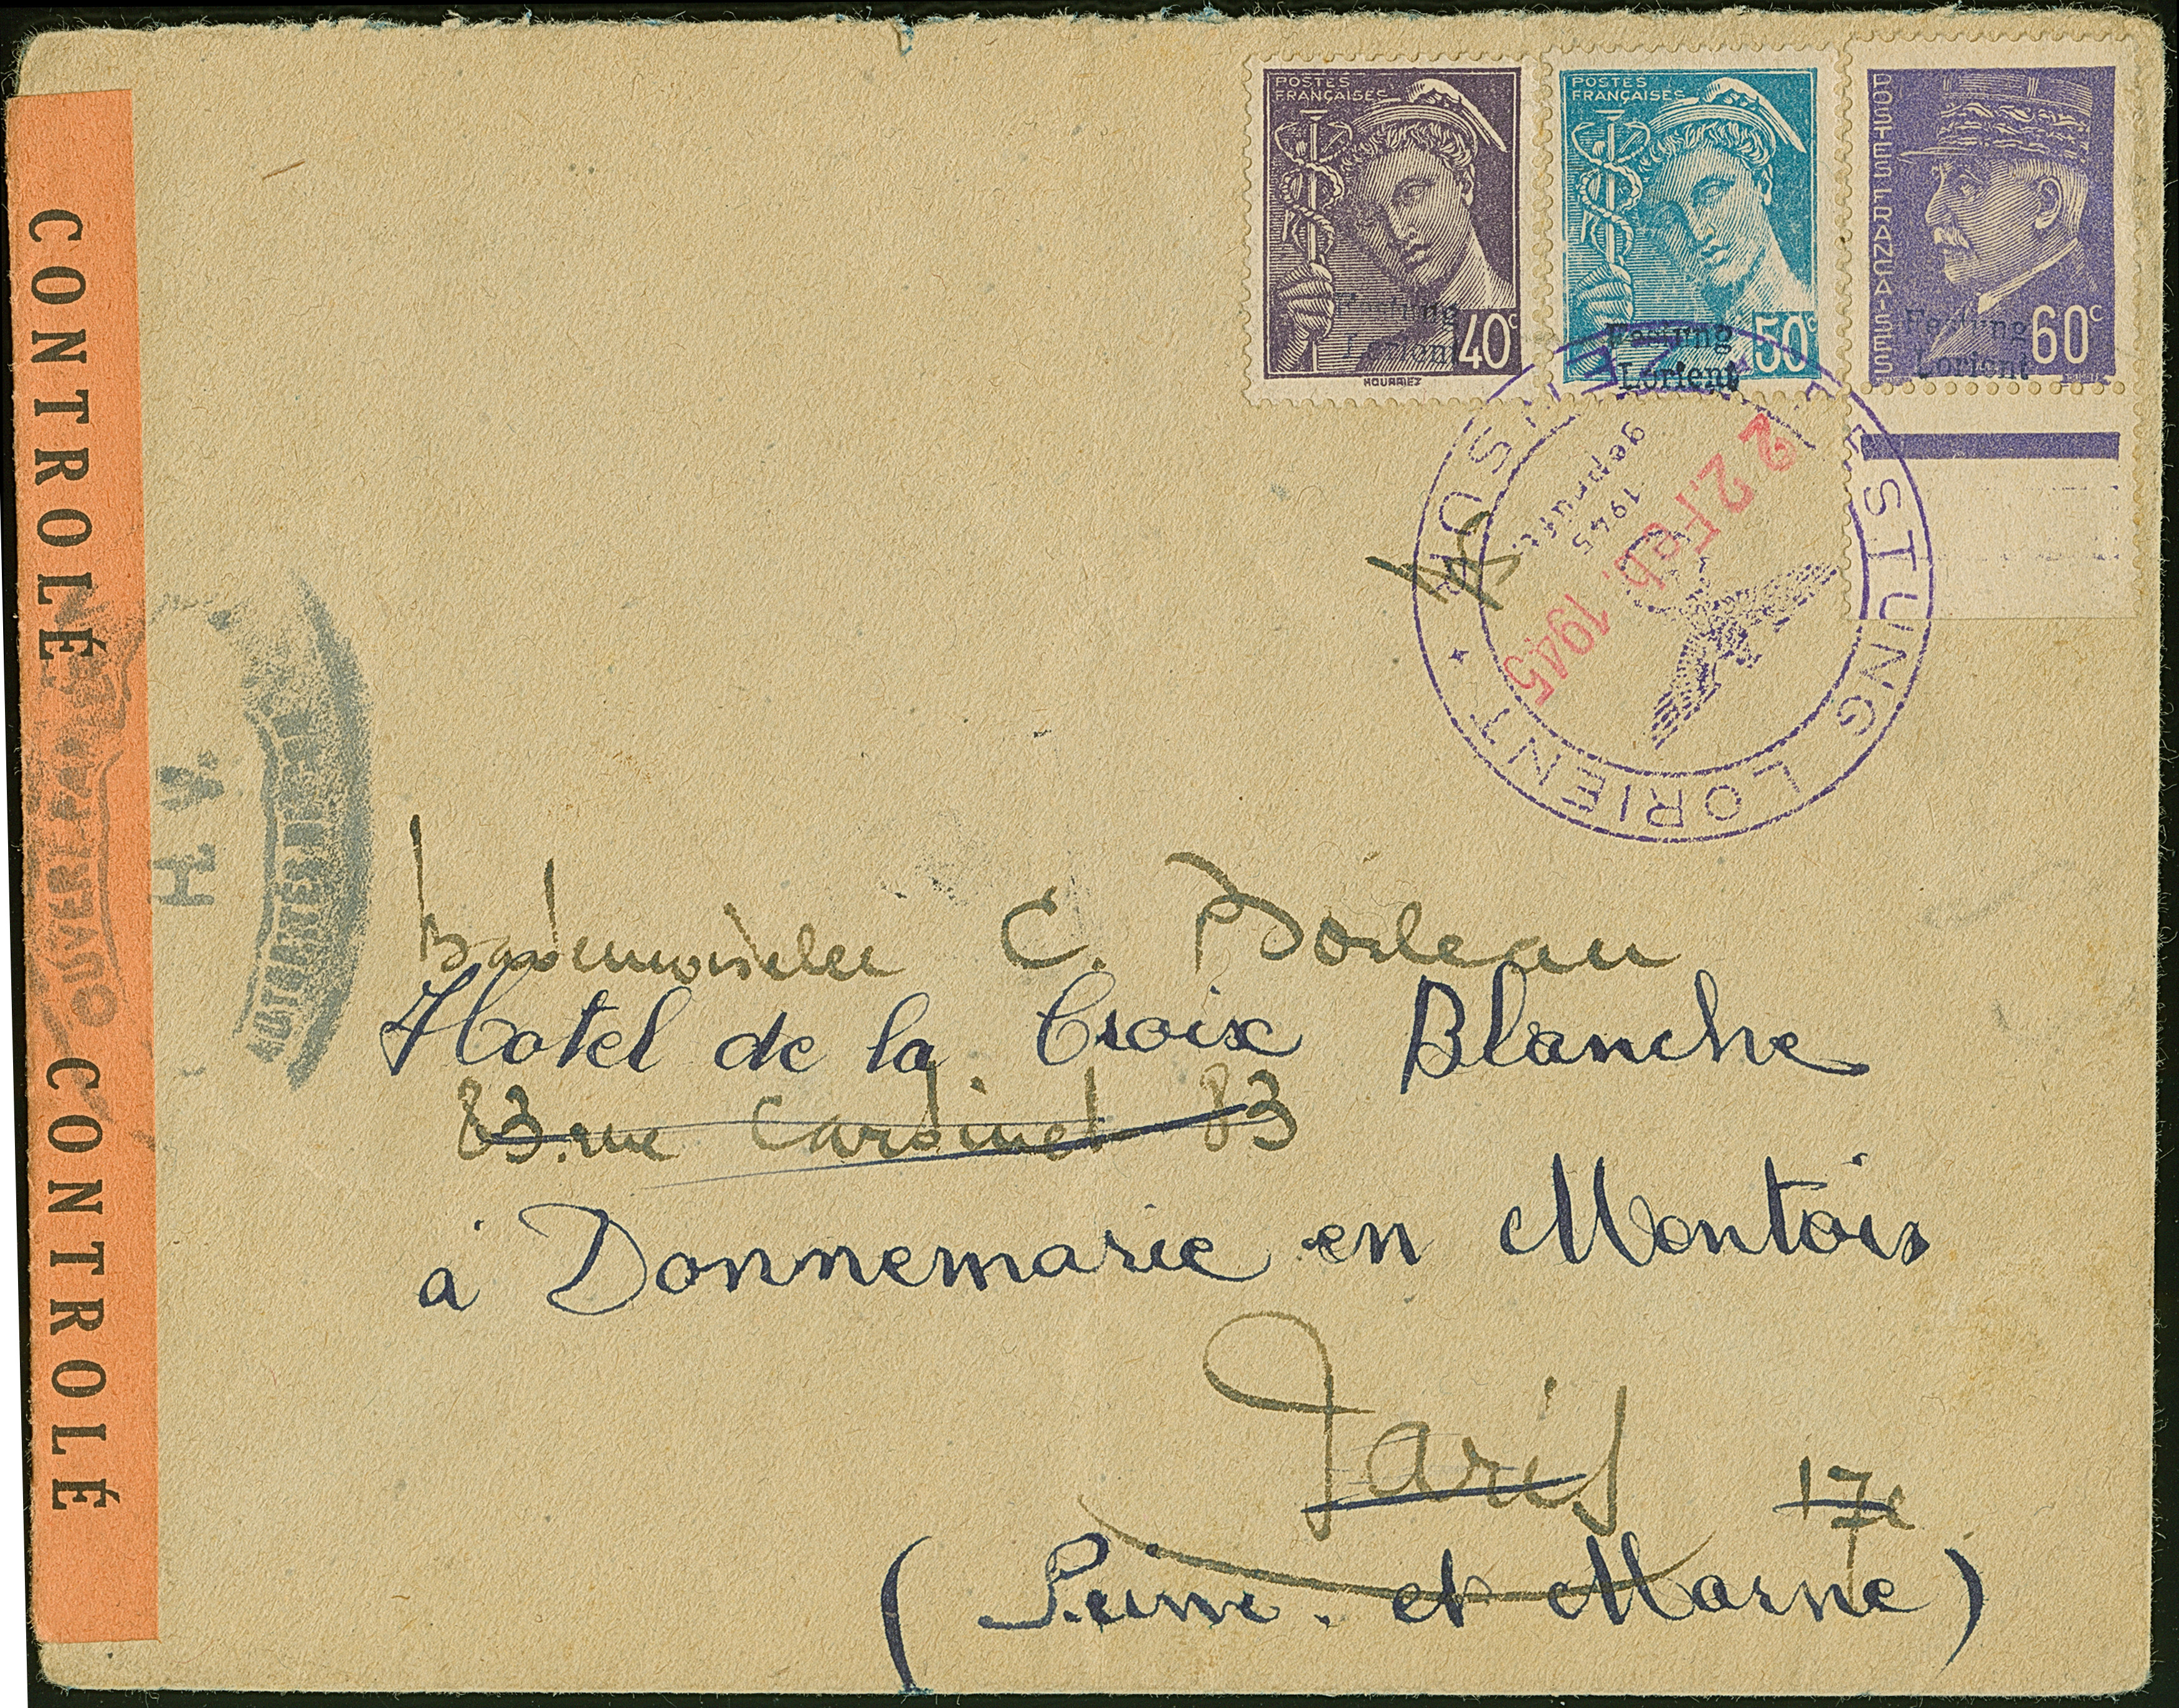 POSTES
FRANÇAISES
Festung
Lorient
40c
HOURRIEZ
POSTES
FRANÇAISES
Festung
Lorient
50c
POSTES FRANÇAISES
Festung
Lorient
60c
FESTUNG LORIENT
22. Feb. 1945
1945
geprüft
CONTROLÉ
CONTROLÉ
OUVERT PAR
AUTORITÉ
Mademoiselle C. Boileau
Hotel de la Croix Blanche
83 rue Cardinet 83
à Donnemarie en Montois
Paris 17e
(Seine et Marne)